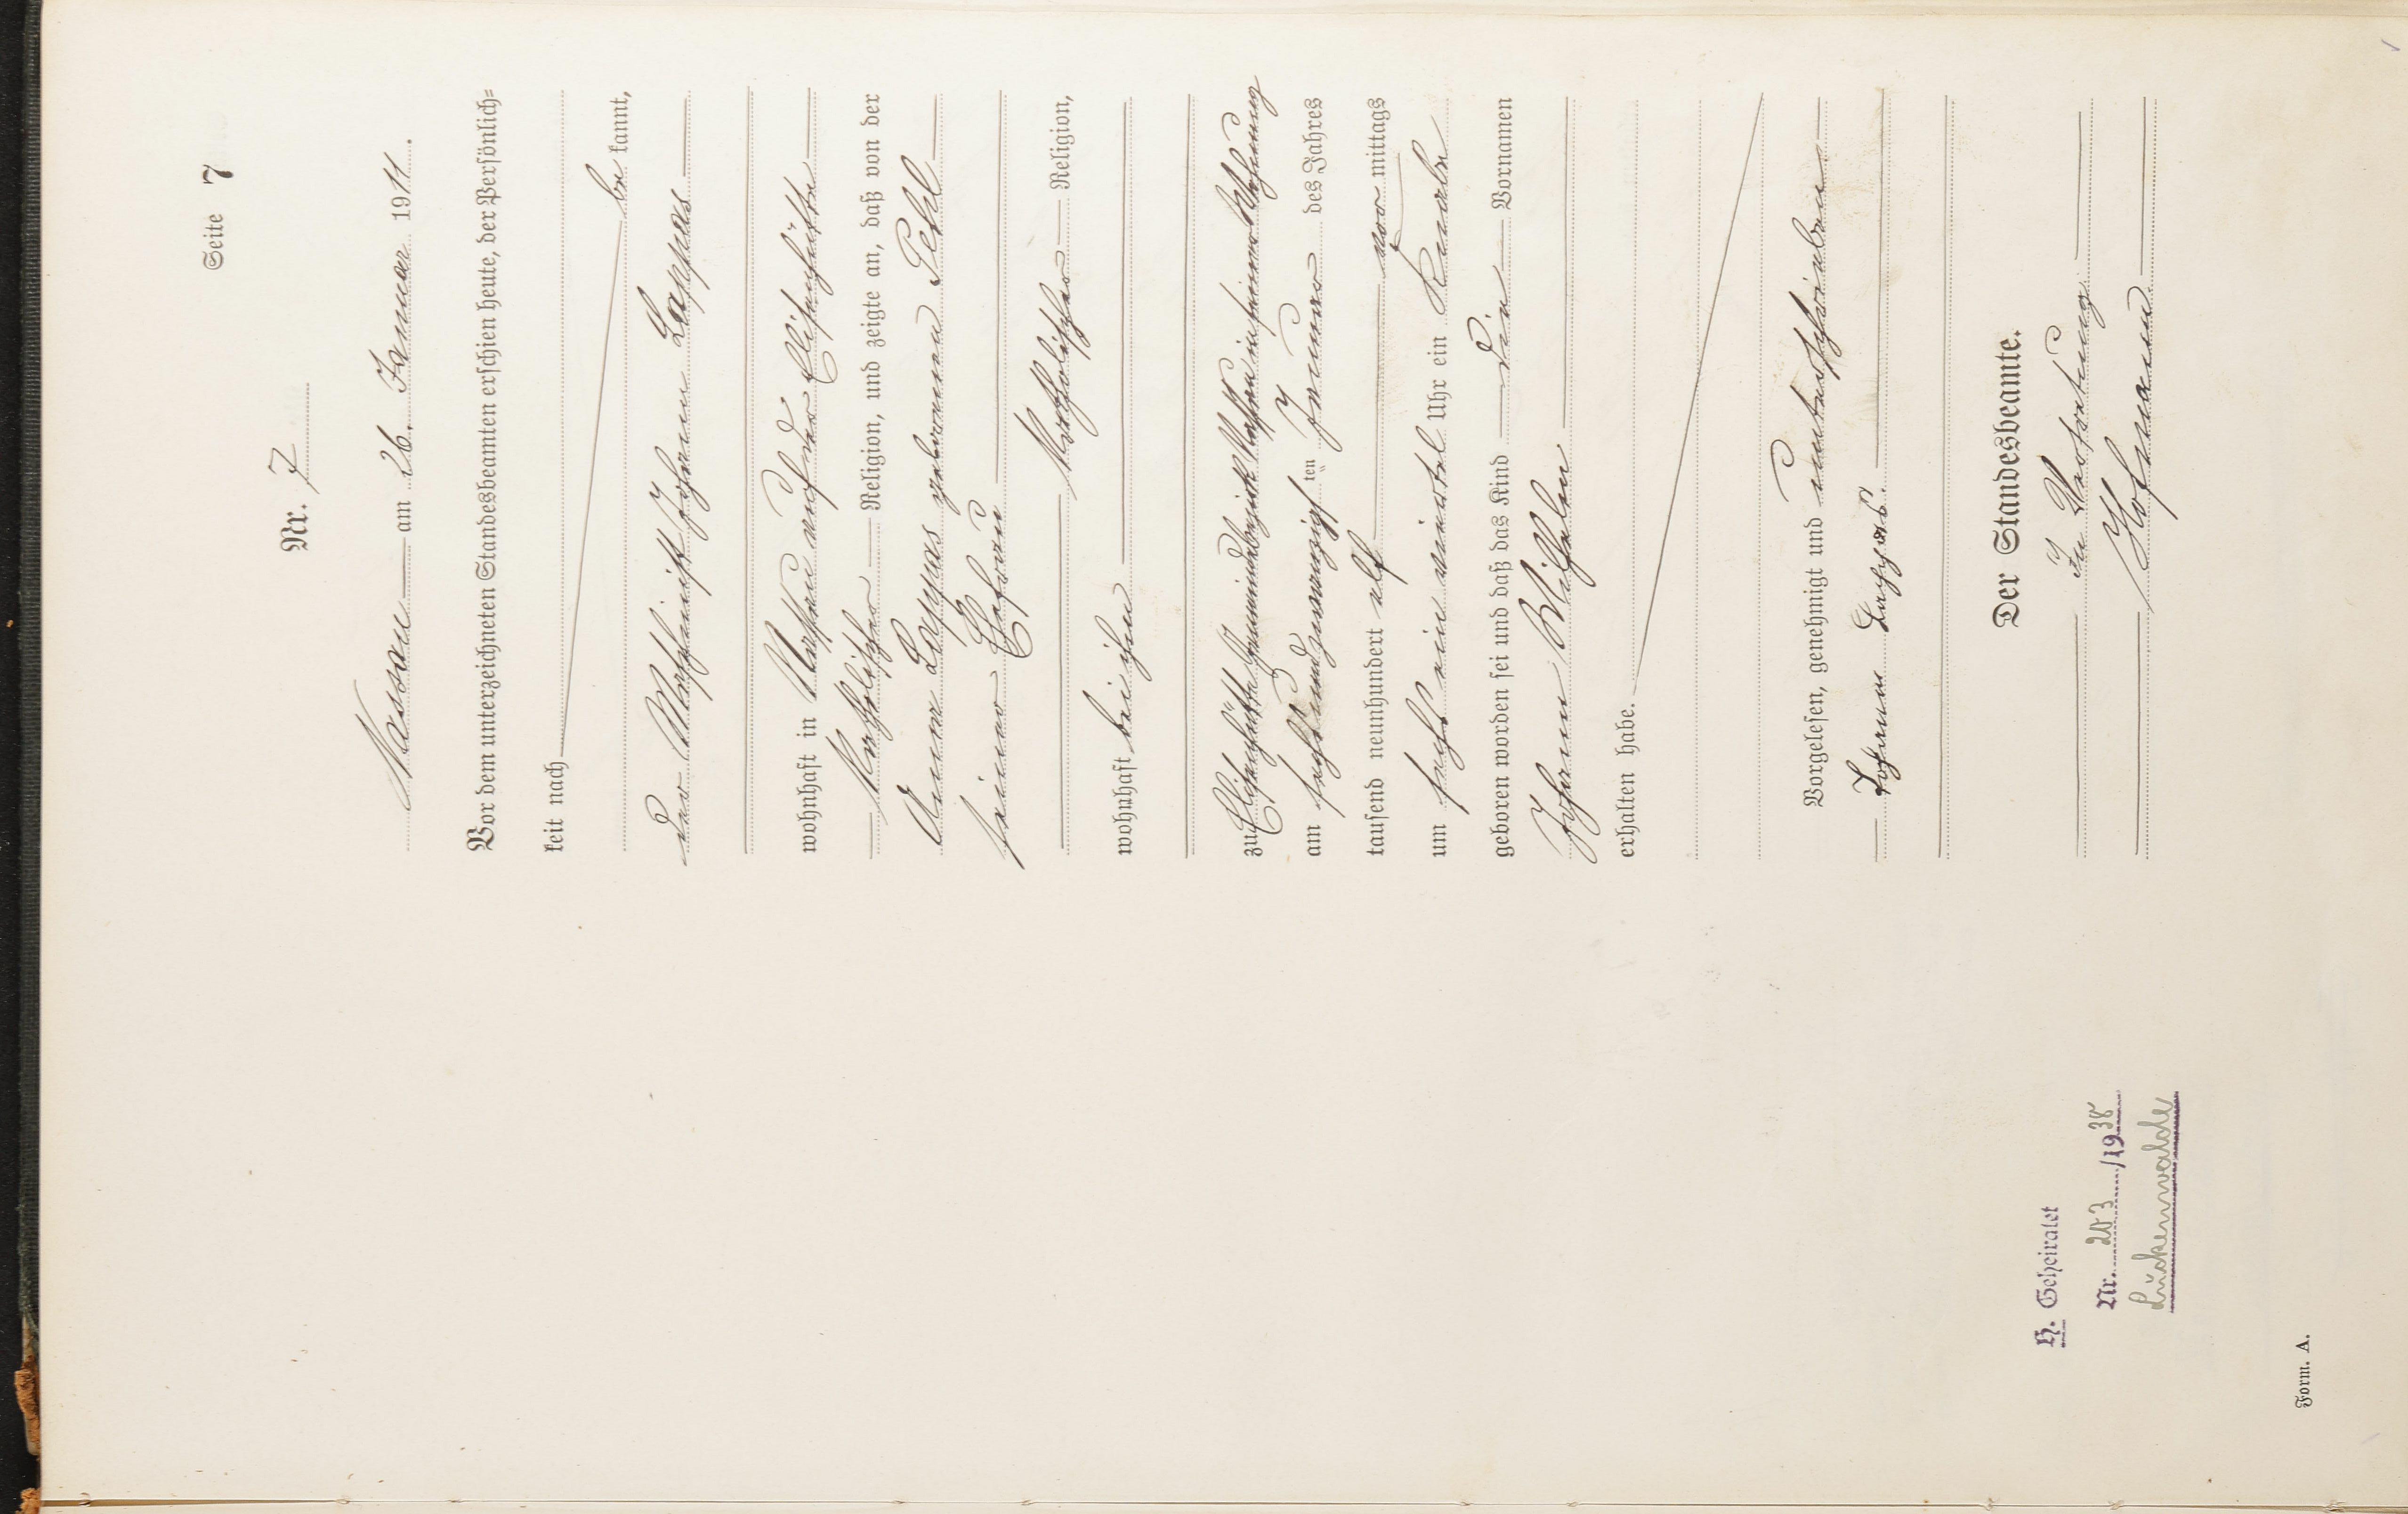 Seite 7
Nr. 7
Nassau am 26. Januar 1911.
Vor dem unterzeichneten Standesbeamten erschien heute, der Persönlich-
keit nach
be kannt,
der Maschinist Johann Lappas
wohnhaft in Nassau auf der Elisenhütte
katholischer Religion, und zeigte an, daß von der
Anna Lappas geborenen Pehl
seiner Ehefrau
katholischer Religion,
wohnhaft bei ihm
zu Elisenhütte Gemeindebezirk Nassau in seiner Wohnung
am sechsundzwanzigsten Januar des Jahres
tausend neunhundert elf vor mittags
um sechs ein viertel Uhr ein Knabe
geboren worden sei und daß das Kind die Vornamen
Johann Wilhelm
erhalten habe.
Vorgelesen, genehmigt und unterschrieben
Johann Lappas.
Der Standesbeamte.
In Vertretung
Hofmann
H. Geheiratet
Nr. 203/1938
Luckenwalde
Form. A.